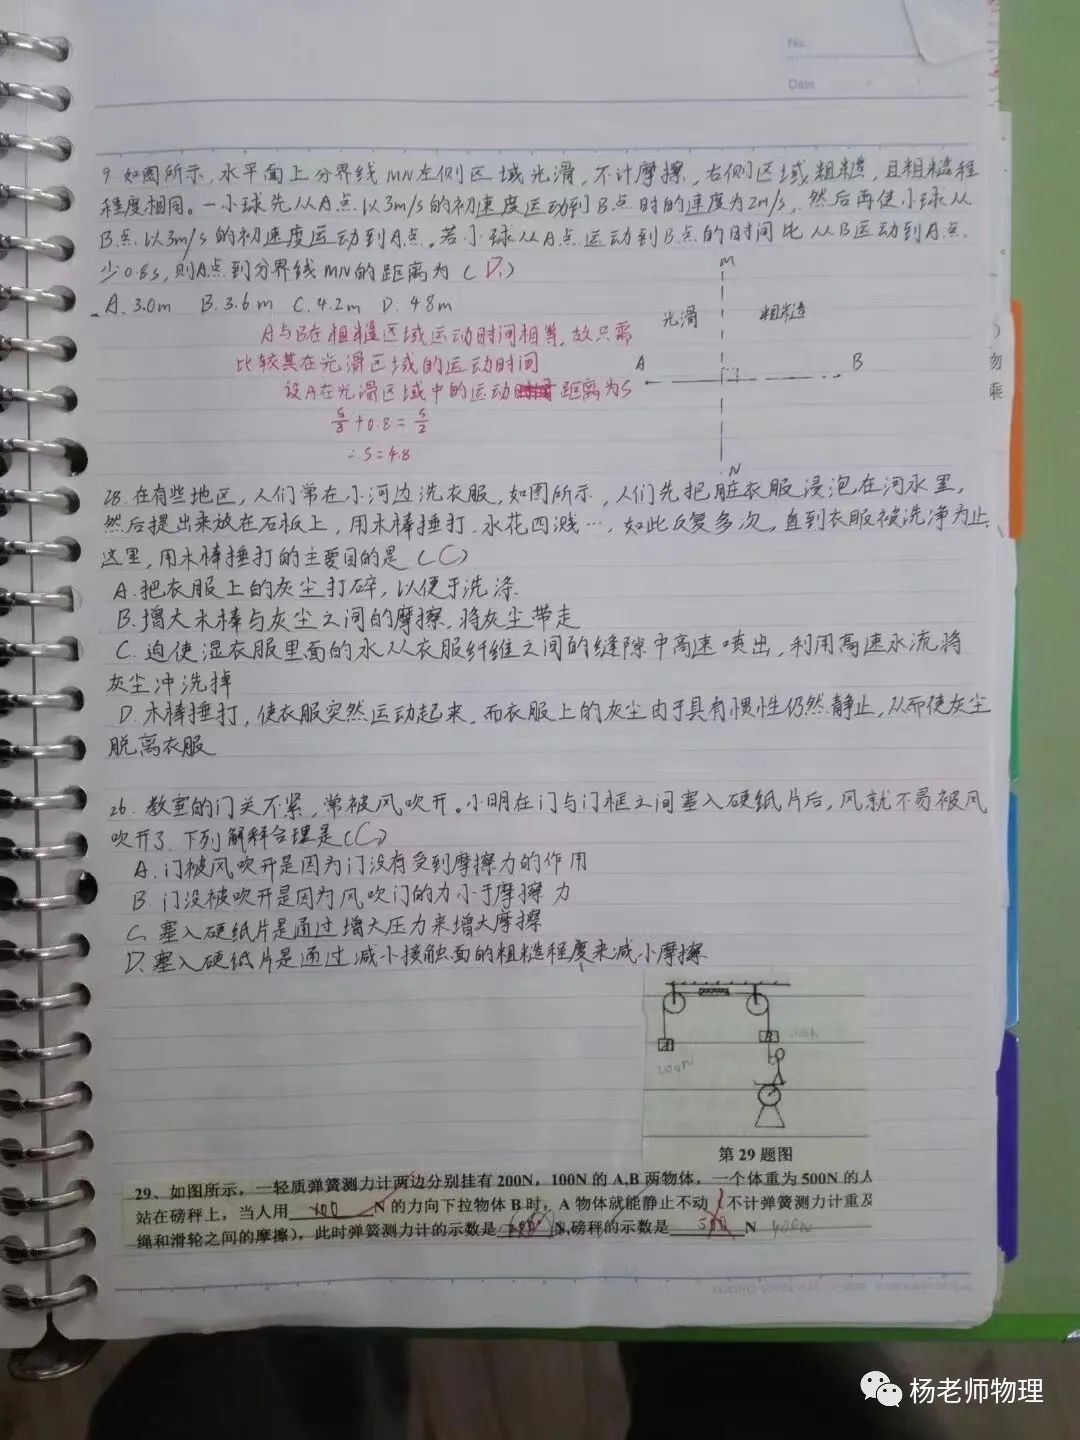 No.
Date
9. 如图所示,水平面上分界线MN左侧区域光滑,不计摩擦,右侧区域粗糙,且粗糙程
程度相同。一小球先从A点以3m/s的初速度运动到B点时的速度为2m/s,然后再使小球从
B点以3m/s的初速度运动到A点。若小球从A点运动到B点的时间比从B运动到A点
少0.8s,则A点到分界线MN的距离为(D)
A. 3.0m B. 3.6m C. 4.2m D. 4.8m
M
光滑 粗糙
A B
N
A与B在粗糙区域运动时间相等,故只需
比较其在光滑区域的运动时间
设A在光滑区域中的运动距离为S
S/3+0.8=S/2
∴S=4.8
28. 在有些地区,人们常在小河边洗衣服,如图所示,人们先把脏衣服浸泡在河水里,
然后提出来放在石板上,用木棒捶打,水花四溅…,如此反复多次,直到衣服被洗净为止.
这里,用木棒捶打的主要目的是(C)
A. 把衣服上的灰尘打碎,以便于洗涤
B. 增大木棒与灰尘之间的摩擦,将灰尘带走
C. 迫使湿衣服里面的水从衣服纤维之间的缝隙中高速喷出,利用高速水流将
灰尘冲洗掉
D. 木棒捶打,使衣服突然运动起来,而衣服上的灰尘由于具有惯性仍然静止,从而使灰尘
脱离衣服
26. 教室的门关不紧,常被风吹开。小明在门与门框之间塞入硬纸片后,风就不易被风
吹开了.下列解释合理是(C)
A. 门被风吹开是因为门没有受到摩擦力的作用
B. 门没被吹开是因为风吹门的力小于摩擦力
C. 塞入硬纸片是通过增大压力来增大摩擦
D. 塞入硬纸片是通过减小接触面的粗糙程度来减小摩擦
200N
第29题图
29、如图所示,一轻质弹簧测力计两边分别挂有200N,100N的A,B两物体,一个体重为500N的人
站在磅秤上,当人用 100 N的力向下拉物体B时,A物体就能静止不动(不计弹簧测力计重及
绳和滑轮之间的摩擦),此时弹簧测力计的示数是 200 N,磅秤的示数是 N 400N
勿
乘
杨老师物理